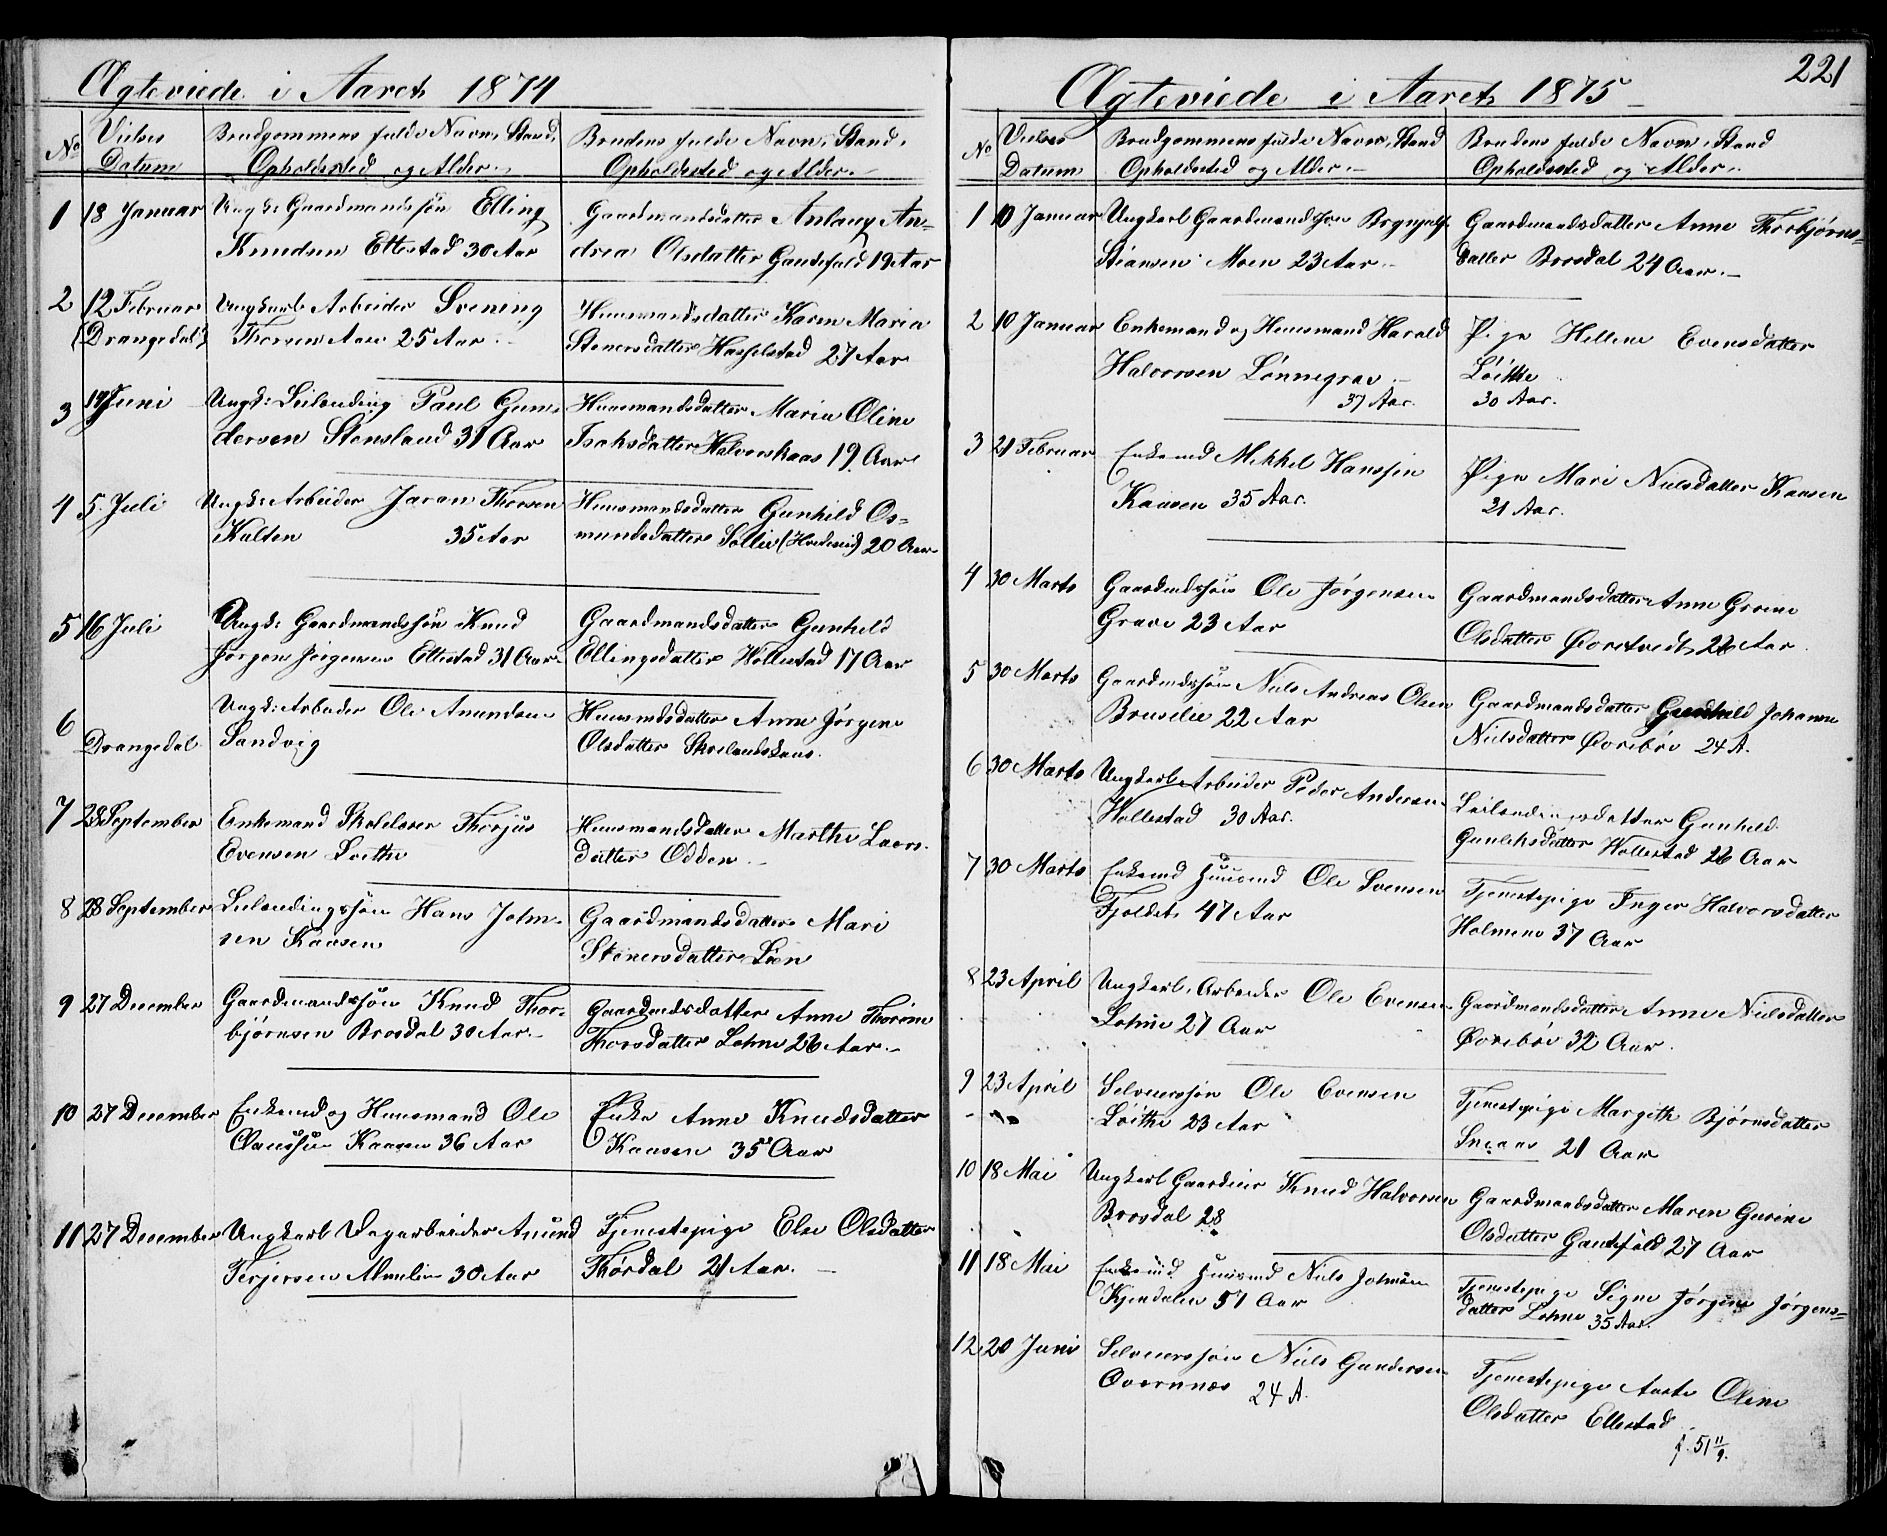 Ægteviede i Aaret 1874
No
Vielses Datum
Brudgommens fulde Navn, Stand, Opholdssted og Alder.
Brudens fulde Navn, Stand, Opholdssted og Alder.
1 18 Januar Ungk: Gaardmandssøn Elling
Knudsen Ettestad 30 Aar
Gaardmandsdatter Anlaug An-
drea Olsdatter Gautefald 19 Aar
2 12 Februar Ungkarl Arbeider Svening
(Drangedal) Thorsen Aase 25 Aar
Huusmandsdatter Karen Maria
Stenersdatter Hasselstad 27 Aar
3 19 Juni Ungk: Leilending Paul Gun-
dersen Stensland 31 Aar
Huusmandsdatter Maria Oline
Isaksdatter Halvorskaas 19 Aar
4 5. Juli Ungk: Arbeider Jaran Thorsen
Kalten 35 Aar
Huusmandsdatter Gunhild Os-
mundsdatter Sollie (Hvideseid) 20 Aar
5 16 Juli Ungk: Gaardmandssøn Knud
Jørgen Jørgensen Ettestad 31 Aar
Gaardmandsdatter Gunhild
Ellingsdatter Wollestad 17 Aar
6 Ungk: Arbeider Ole Amundsen
Drangedal Sandvig
Huusmdsdatter Anne Jørgine
Olsdatter Skoelandskaas.
7 28 September Enkemand Skolelærer Thorjus
Evensen Loithe
Huusmandsdatter Marthe Laurs-
datter Odden
8 28 September Leilendingssøn Hans John-
sen Kaasen
Gaardmandsdatter Mari
Stenersdatter Lien
9 27 December Gaardmandssøn Knud Thor-
bjørnsen Brosdal 30 Aar
Gaardmdsdatter Anne Thorine
Thorsdatter Lohne 26 Aar
10 27 December Enkemd og Huusmand Ole
Claussen Kaasen 36 Aar
Enke Anne Knudsdatter
Kaasen 35 Aar
11 27 December Ungkarl Dagarbeider Amund
Terjersen Almlie 30 Aar
Tjenestepige Else Olsdatter
Thórdal 21 Aar.
221
Ægteviede i Aaret 1875
No
Vielses Datum
Brudgommens fulde Navn, Stand Opholdssted og Alder.
Brudens fulde Navn, Stand Opholdssted og Alder.
1 10 Januar Ungkarl Gaardmandssøn Brynjulf
Stiansen Moen 23 Aar
Gaardmandsdatter Anne Thorbjørns-
datter Brosdal 24 Aar.
2 10 Januar Enkemand og Huusmand Harald
Halvorsen Lønnegrav
37 Aar.
Pige Hellene Evensdatter
Løithe
30 Aar.
3 21 Februar Enkemd Mikkel Hanssen
Kaasen 35 Aar.
Pige Mari Nielsdatter Kaasen
21 Aar.
4 30 Marts Gaardmdssøn Ole Jørgensen
Grave 23 Aar
Gaardmandsdatter Anne Grine
Olsdatter Øvretvedt 26 Aar.
5 30 Marts Gaardmdssøn Niels Andreas Olsen
Bruselie 22 Aar
Gaardmandsdatter Gunhild Johanne
Nielsdatter Øvrebøe 24 A.
6 30 Marts Ungkarl Arbeider Peder Andersen
Wollestad 30 Aar.
Leilendingsdatter Gunhild
Gunleksdatter Wollestad 26 Aar
7 30 Marts Enkemd Huusmd Ole Svensen
Fjoldet 47 Aar
Tjenestepige Inger Halvorsdatter
Holmene 37 Aar
8 23 April Ungkarl Arbeider Ole Evensen
Lohne 27 Aar
Gaardmandsdatter Anne Nielsdatter
Øvrebøe 32 Aar.
9 23 April Selveierssøn Ole Evensen
Løithe 23 Aar
Tjenestepige Margith Bjørnsdatter
Sneaas 21 Aar
10 18 Mai Ungkarl Gaardeier Knud Halvorsen
Brosdal 28
Gaardmandsdatter Maren Gurine
Olsdatter Gautefald 27 Aar
11 18 Mai Enkemd. Huusmd Niels Johnsen
Kjendalen 57 Aar
Tjenestepige Signe Jørgine Jørgens-
datter Lohne 35 Aar.
12 20 Juni Selveierssøn Niels Gundersen
Overnnæs 24 A.
Tjenestepige Aaste Oline
Olsdatter Ettestad
f. 51 11/9.